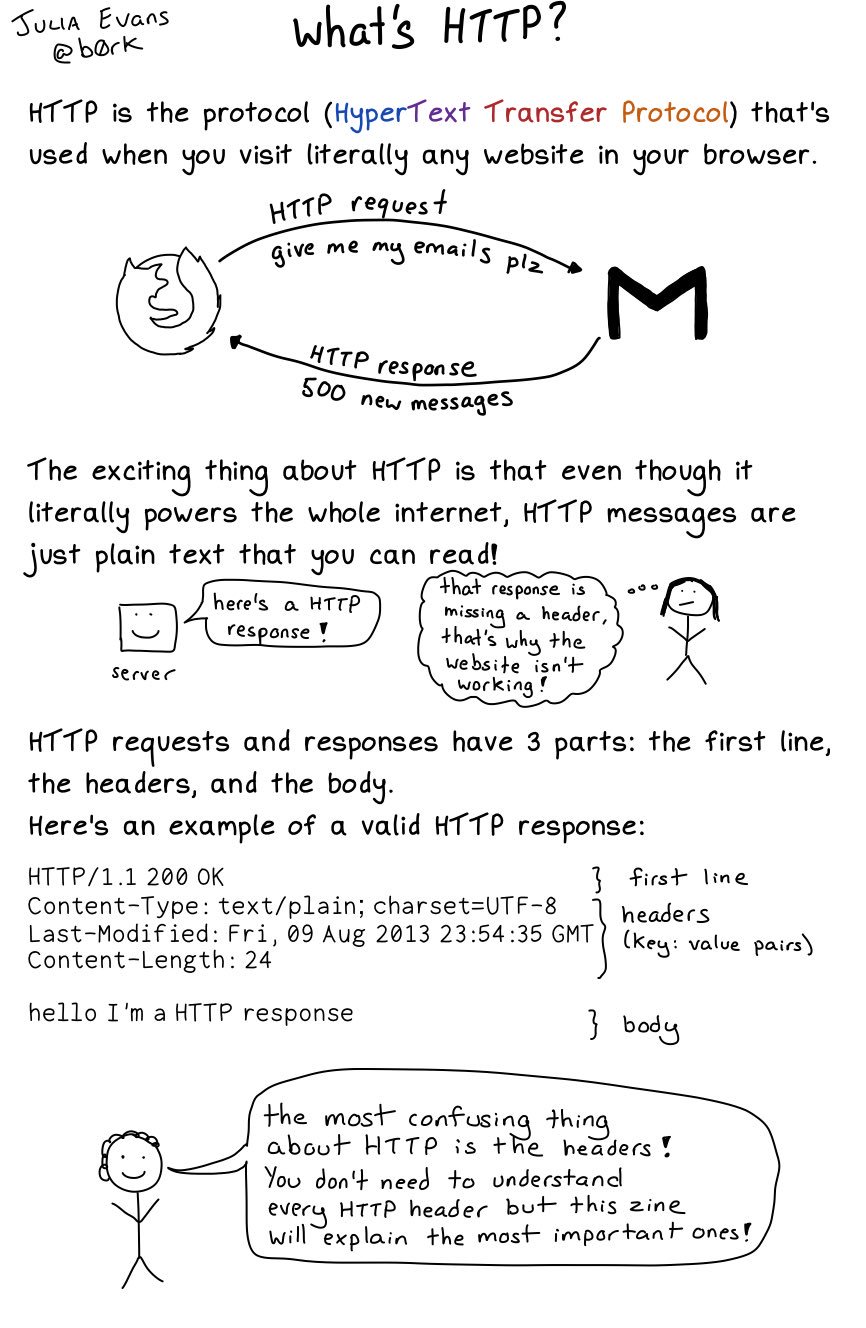 JULIA EVANS
@b0rk
what's HTTP?
HTTP is the protocol (HyperText Transfer Protocol) that's
used when you visit literally any website in your browser.
HTTP request
give me my emails plz
HTTP response
500 new messages
The exciting thing about HTTP is that even though it
literally powers the whole internet, HTTP messages are
just plain text that you can read!
here's a HTTP
response!
server
that response is
missing a header,
that's why the
website isn't
working!
HTTP requests and responses have 3 parts: the first line,
the headers, and the body.
Here's an example of a valid HTTP response:
HTTP/1.1 200 OK
} first line
Content-Type: text/plain; charset=UTF-8
Last-Modified: Fri, 09 Aug 2013 23:54:35 GMT
Content-Length: 24
} headers
(key: value pairs)
hello I'm a HTTP response
} body
the most confusing thing
about HTTP is the headers!
You don't need to understand
every HTTP header but this zine
will explain the most important ones!